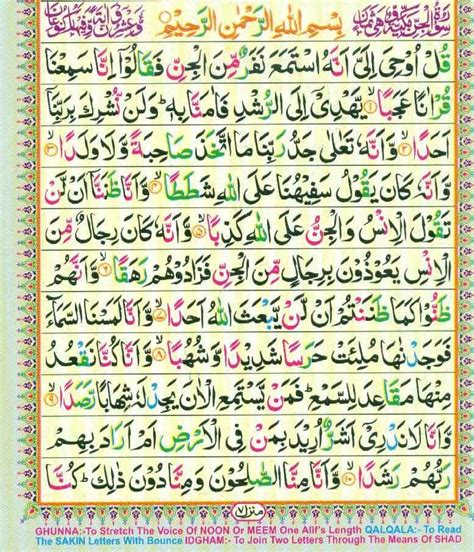 سُوْرَةُ الْجِنِّ مَكِّيَّةٌ وَّهِيَ بِسْمِ اللهِ الرَّحْمٰنِ الرَّحِيْمِ
قُلْ اُوْحِيَ اِلَيَّ اَنَّهُ اسْتَمَعَ نَفَرٌ مِّنَ الْجِنِّ فَقَالُوْۤا اِنَّا سَمِعْنَا
قُرْاٰنًا عَجَبًا ۙ﴿۱﴾ يَّهْدِيْۤ اِلَى الرُّشْدِ فَاٰمَنَّا بِهٖ ؕ وَلَنْ نُّشْرِكَ بِرَبِّنَاۤ
اَحَدًا ۙ﴿۲﴾ وَّاَنَّهٗ تَعٰلٰى جَدُّ رَبِّنَا مَا اتَّخَذَ صَاحِبَةً وَّلَا وَلَدًا ۙ﴿۳﴾
وَّاَنَّهٗ كَانَ يَقُوْلُ سَفِيْهُنَا عَلَى اللهِ شَطَطًا ۙ﴿۴﴾ وَّاَنَّا ظَنَنَّاۤ اَنْ لَّنْ
تَقُوْلَ الْاِنْسُ وَالْجِنُّ عَلَى اللهِ كَذِبًا ۙ﴿۵﴾ وَّاَنَّهٗ كَانَ رِجَالٌ مِّنَ
الْاِنْسِ يَعُوْذُوْنَ بِرِجَالٍ مِّنَ الْجِنِّ فَزَادُوْهُمْ رَهَقًا ۙ﴿۶﴾ وَّاَنَّهُمْ
ظَنُّوْا كَمَا ظَنَنْتُمْ اَنْ لَّنْ يَّبْعَثَ اللهُ اَحَدًا ۙ﴿۷﴾ وَّاَنَّا لَمَسْنَا السَّمَآءَ
فَوَجَدْنٰهَا مُلِئَتْ حَرَسًا شَدِيْدًا وَّشُهُبًا ۙ﴿۸﴾ وَّاَنَّا كُنَّا نَقْعُدُ
مِنْهَا مَقَاعِدَ لِلسَّمْعِ ؕ فَمَنْ يَّسْتَمِعِ الْاٰنَ يَجِدْ لَهٗ شِهَابًا رَّصَدًا ۙ﴿۹﴾
وَّاَنَّا لَا نَدْرِيْۤ اَشَرٌّ اُرِيْدَ بِمَنْ فِي الْاَرْضِ اَمْ اَرَادَ بِهِمْ
رَبُّهُمْ رَشَدًا ۙ﴿۱۰﴾ وَّاَنَّا مِنَّا الصّٰلِحُوْنَ وَمِنَّا دُوْنَ ذٰلِكَ ؕ كُنَّا
منزل ۷
GHUNNA:-To Stretch The Voice Of NOON Or MEEM One Alif's Length QALQALA:- To Read
The SAKIN Letters With Bounce IDGHAM:- To Join Two Letters Through The Means Of SHAD